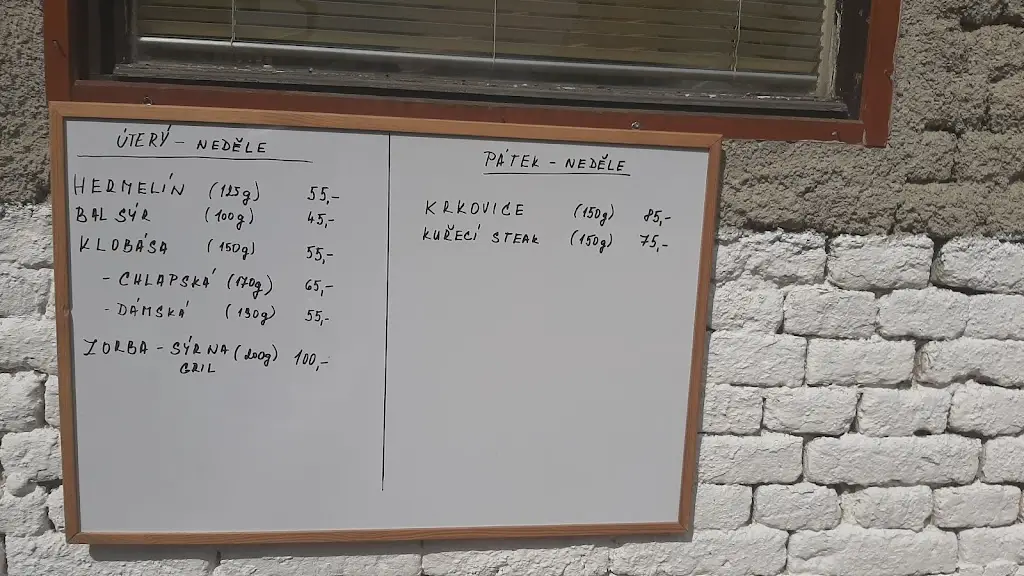 ÚTERÝ - NEDĚLE
HERMELÍN (125g) 55,-
BAL SÝR (100g) 45,-
KLOBÁSA (150g) 55,-
- CHLAPSKÁ (170g) 65,-
- DÁMSKÁ (130g) 55,-
ZORBA - SÝR NA (200g) 100,-
GRIL
PÁTEK - NEDĚLE
KRKOVICE (150g) 85,-
KUŘECÍ STEAK (150g) 75,-